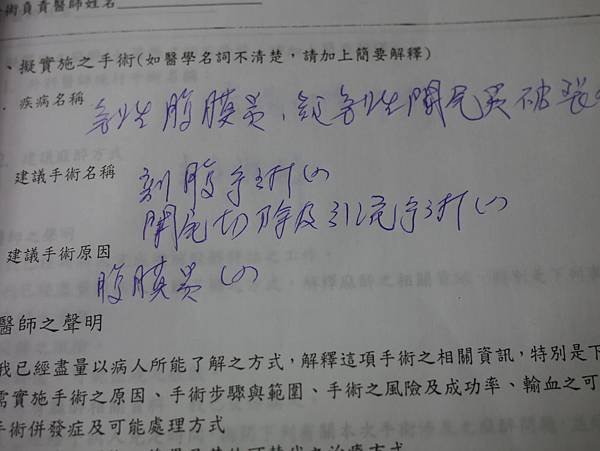 術負責醫師姓名
、擬實施之手術(如醫學名詞不清楚，請加上簡要解釋)
. 疾病名稱 急性腹膜炎、疑急性闌尾炎破裂
建議手術名稱 剖腹手術
闌尾切除及引流手術
建議手術原因
腹膜炎
醫師之聲明
我已經盡量以病人所能了解之方式，解釋這項手術之相關資訊，特別是下
需實施手術之原因、手術步驟與範圍、手術之風險及成功率、輸血之可
手術併發症及可能處理方式